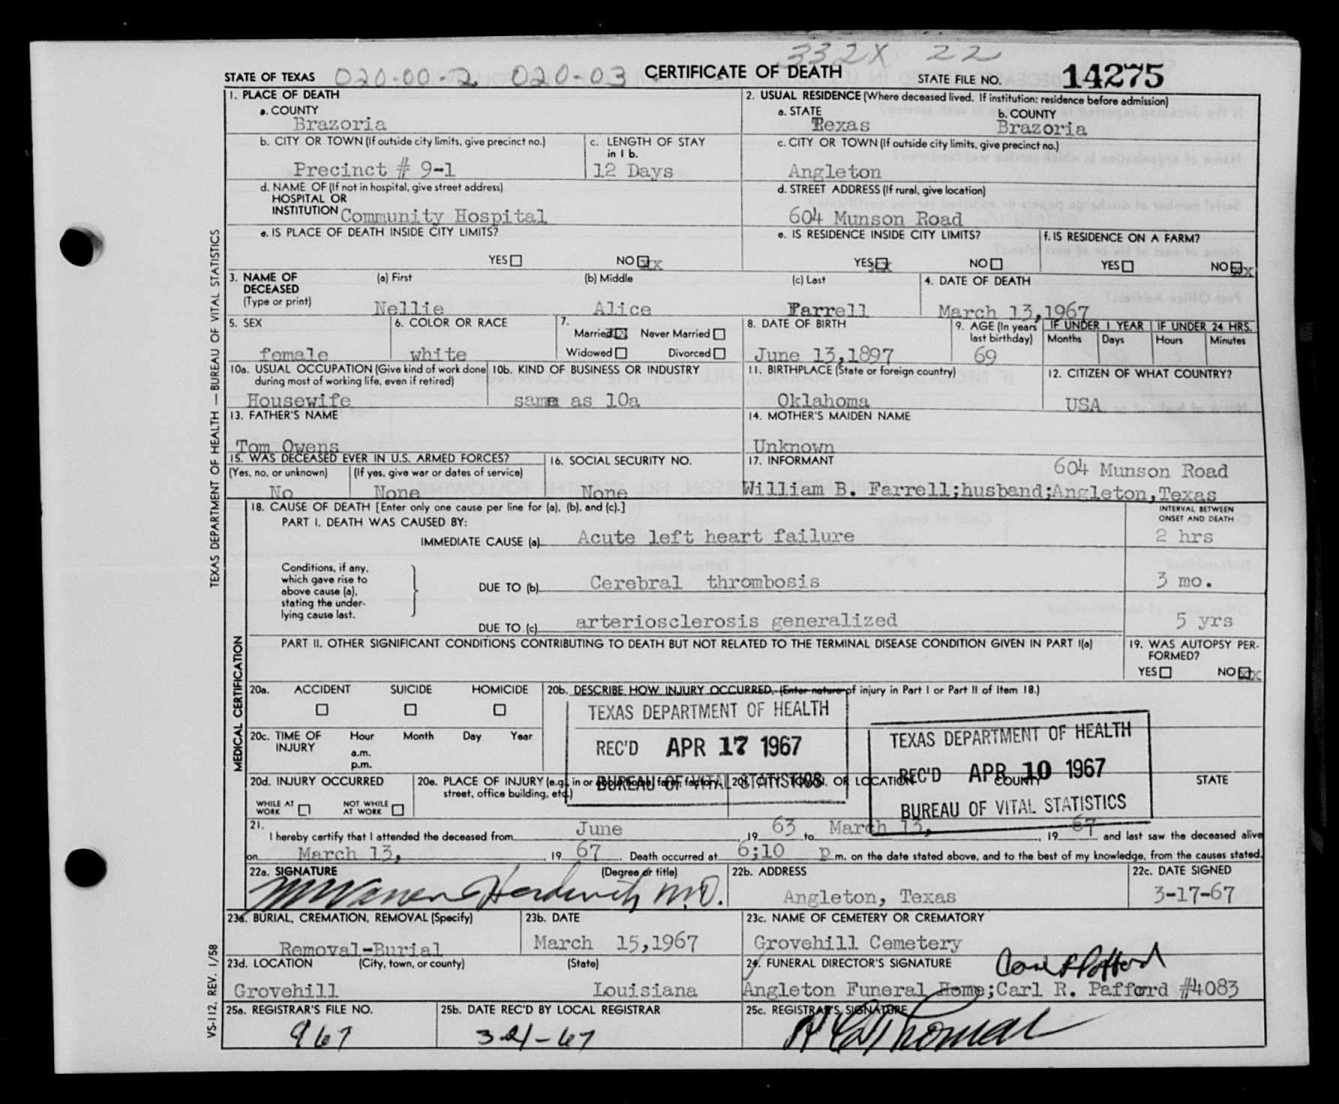 332X 22
STATE OF TEXAS 020-00-2 020-03 CERTIFICATE OF DEATH STATE FILE NO. 14275
1. PLACE OF DEATH
a. COUNTY
Brazoria
2. USUAL RESIDENCE (Where deceased lived. If institution: residence before admission)
a. STATE b. COUNTY
Texas Brazoria
b. CITY OR TOWN (If outside city limits, give precinct no.) c. LENGTH OF STAY in 1 b.
Precinct # 9-1 12 Days
c. CITY OR TOWN (If outside city limits, give precinct no.)
Angleton
d. NAME OF (If not in hospital, give street address)
HOSPITAL OR
INSTITUTION Community Hospital
d. STREET ADDRESS (If rural, give location)
604 Munson Road
e. IS PLACE OF DEATH INSIDE CITY LIMITS?
YES NO x
e. IS RESIDENCE INSIDE CITY LIMITS? f. IS RESIDENCE ON A FARM?
YES x NO YES NO x
3. NAME OF DECEASED (Type or print) (a) First (b) Middle (c) Last 4. DATE OF DEATH
Nellie Alice Farrell March 13,1967
5. SEX 6. COLOR OR RACE 7. Married x Never Married
female white Widowed Divorced
8. DATE OF BIRTH 9. AGE (In years last birthday) IF UNDER 1 YEAR IF UNDER 24 HRS.
Months Days Hours Minutes
June 13,1897 69
10a. USUAL OCCUPATION (Give kind of work done during most of working life, even if retired) 10b. KIND OF BUSINESS OR INDUSTRY
Housewife same as 10a
11. BIRTHPLACE (State or foreign country) 12. CITIZEN OF WHAT COUNTRY?
Oklahoma USA
13. FATHER'S NAME 14. MOTHER'S MAIDEN NAME
Tom Owens Unknown
15. WAS DECEASED EVER IN U.S. ARMED FORCES? 16. SOCIAL SECURITY NO. 17. INFORMANT 604 Munson Road
(Yes, no, or unknown) (If yes, give war or dates of service)
No None None William B. Farrell;husband;Angleton,Texas
18. CAUSE OF DEATH [Enter only one cause per line for (a), (b), and (c).] INTERVAL BETWEEN ONSET AND DEATH
PART I. DEATH WAS CAUSED BY:
IMMEDIATE CAUSE (a) Acute left heart failure 2 hrs
Conditions, if any, which gave rise to above cause (a), stating the underlying cause last.
DUE TO (b) Cerebral thrombosis 3 mo.
DUE TO (c) arteriosclerosis generalized 5 yrs
PART II. OTHER SIGNIFICANT CONDITIONS CONTRIBUTING TO DEATH BUT NOT RELATED TO THE TERMINAL DISEASE CONDITION GIVEN IN PART I(a) 19. WAS AUTOPSY PERFORMED?
YES NO x
20a. ACCIDENT SUICIDE HOMICIDE 20b. DESCRIBE HOW INJURY OCCURRED. (Enter nature of injury in Part I or Part II of Item 18.)
TEXAS DEPARTMENT OF HEALTH
REC'D APR 17 1967
BUREAU OF VITAL STATISTICS
TEXAS DEPARTMENT OF HEALTH
REC'D APR 10 1967
BUREAU OF VITAL STATISTICS
20c. TIME OF INJURY Hour Month Day Year
a.m.
p.m.
20d. INJURY OCCURRED
WHILE AT WORK NOT WHILE AT WORK
20e. PLACE OF INJURY (e.g., in or about home, farm, factory, street, office building, etc.)
20f. CITY, TOWN, OR LOCATION COUNTY STATE
21. I hereby certify that I attended the deceased from June 19 63 to March 13, 19 67 and last saw the deceased alive
on March 13, 19 67. Death occurred at 6;10 p m. on the date stated above, and to the best of my knowledge, from the causes stated.
22a. SIGNATURE (Degree or title) 22b. ADDRESS 22c. DATE SIGNED
M.D. Angleton, Texas 3-17-67
23a. BURIAL, CREMATION, REMOVAL (Specify) 23b. DATE 23c. NAME OF CEMETERY OR CREMATORY
Removal-Burial March 15,1967 Grovehill Cemetery
23d. LOCATION (City, town, or county) (State) 24. FUNERAL DIRECTOR'S SIGNATURE Carl R Pafford
Grovehill Louisiana Angleton Funeral Home;Carl R. Pafford #4083
25a. REGISTRAR'S FILE NO. 25b. DATE REC'D BY LOCAL REGISTRAR 25c. REGISTRAR'S SIGNATURE
967 3-21-67
TEXAS DEPARTMENT OF HEALTH — BUREAU OF VITAL STATISTICS
MEDICAL CERTIFICATION
VS-112, REV. 1/58